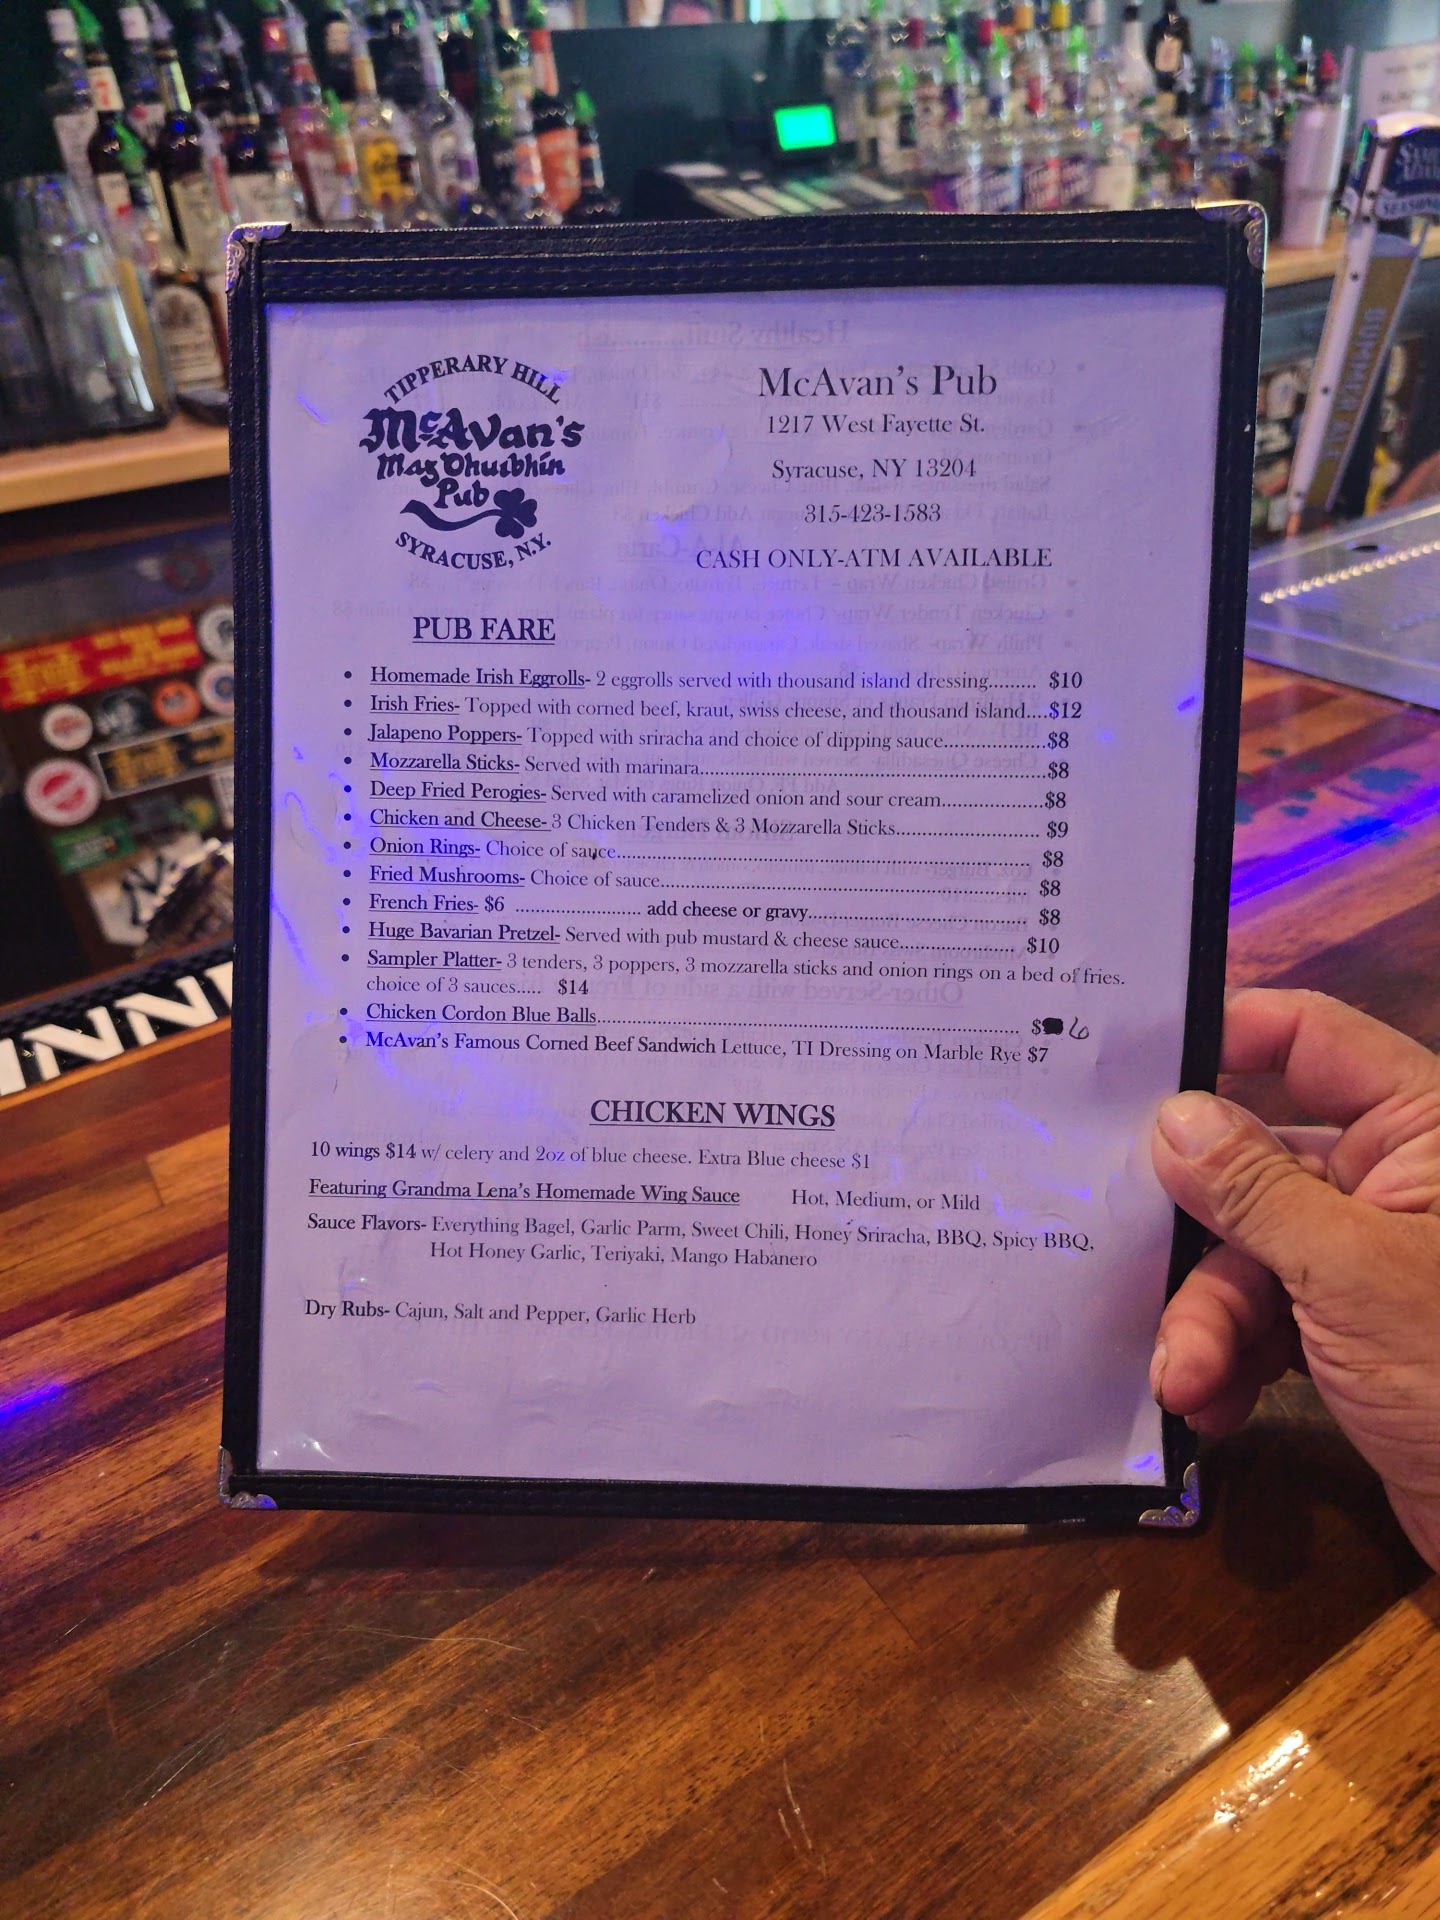 TIPPERARY HILL
McAvan's
Mag Dhuibhín
Pub
SYRACUSE, N.Y.
McAvan's Pub
1217 West Fayette St.
Syracuse, NY 13204
315-423-1583
CASH ONLY-ATM AVAILABLE
PUB FARE
• Homemade Irish Eggrolls- 2 eggrolls served with thousand island dressing......... $10
• Irish Fries- Topped with corned beef, kraut, swiss cheese, and thousand island....$12
• Jalapeno Poppers- Topped with sriracha and choice of dipping sauce....................$8
• Mozzarella Sticks- Served with marinara....................................................................$8
• Deep Fried Perogies- Served with caramelized onion and sour cream....................$8
• Chicken and Cheese- 3 Chicken Tenders & 3 Mozzarella Sticks............................. $9
• Onion Rings- Choice of sauce.................................................................................. $8
• Fried Mushrooms- Choice of sauce.......................................................................... $8
• French Fries- $6 ......................... add cheese or gravy............................................ $8
• Huge Bavarian Pretzel- Served with pub mustard & cheese sauce....................... $10
• Sampler Platter- 3 tenders, 3 poppers, 3 mozzarella sticks and onion rings on a bed of fries.
choice of 3 sauces..... $14
• Chicken Cordon Blue Balls.................................................................................... $ 6
• McAvan's Famous Corned Beef Sandwich Lettuce, TI Dressing on Marble Rye $7
CHICKEN WINGS
10 wings $14 w/ celery and 2oz of blue cheese. Extra Blue cheese $1
Featuring Grandma Lena's Homemade Wing Sauce Hot, Medium, or Mild
Sauce Flavors- Everything Bagel, Garlic Parm, Sweet Chili, Honey Sriracha, BBQ, Spicy BBQ,
Hot Honey Garlic, Teriyaki, Mango Habanero
Dry Rubs- Cajun, Salt and Pepper, Garlic Herb